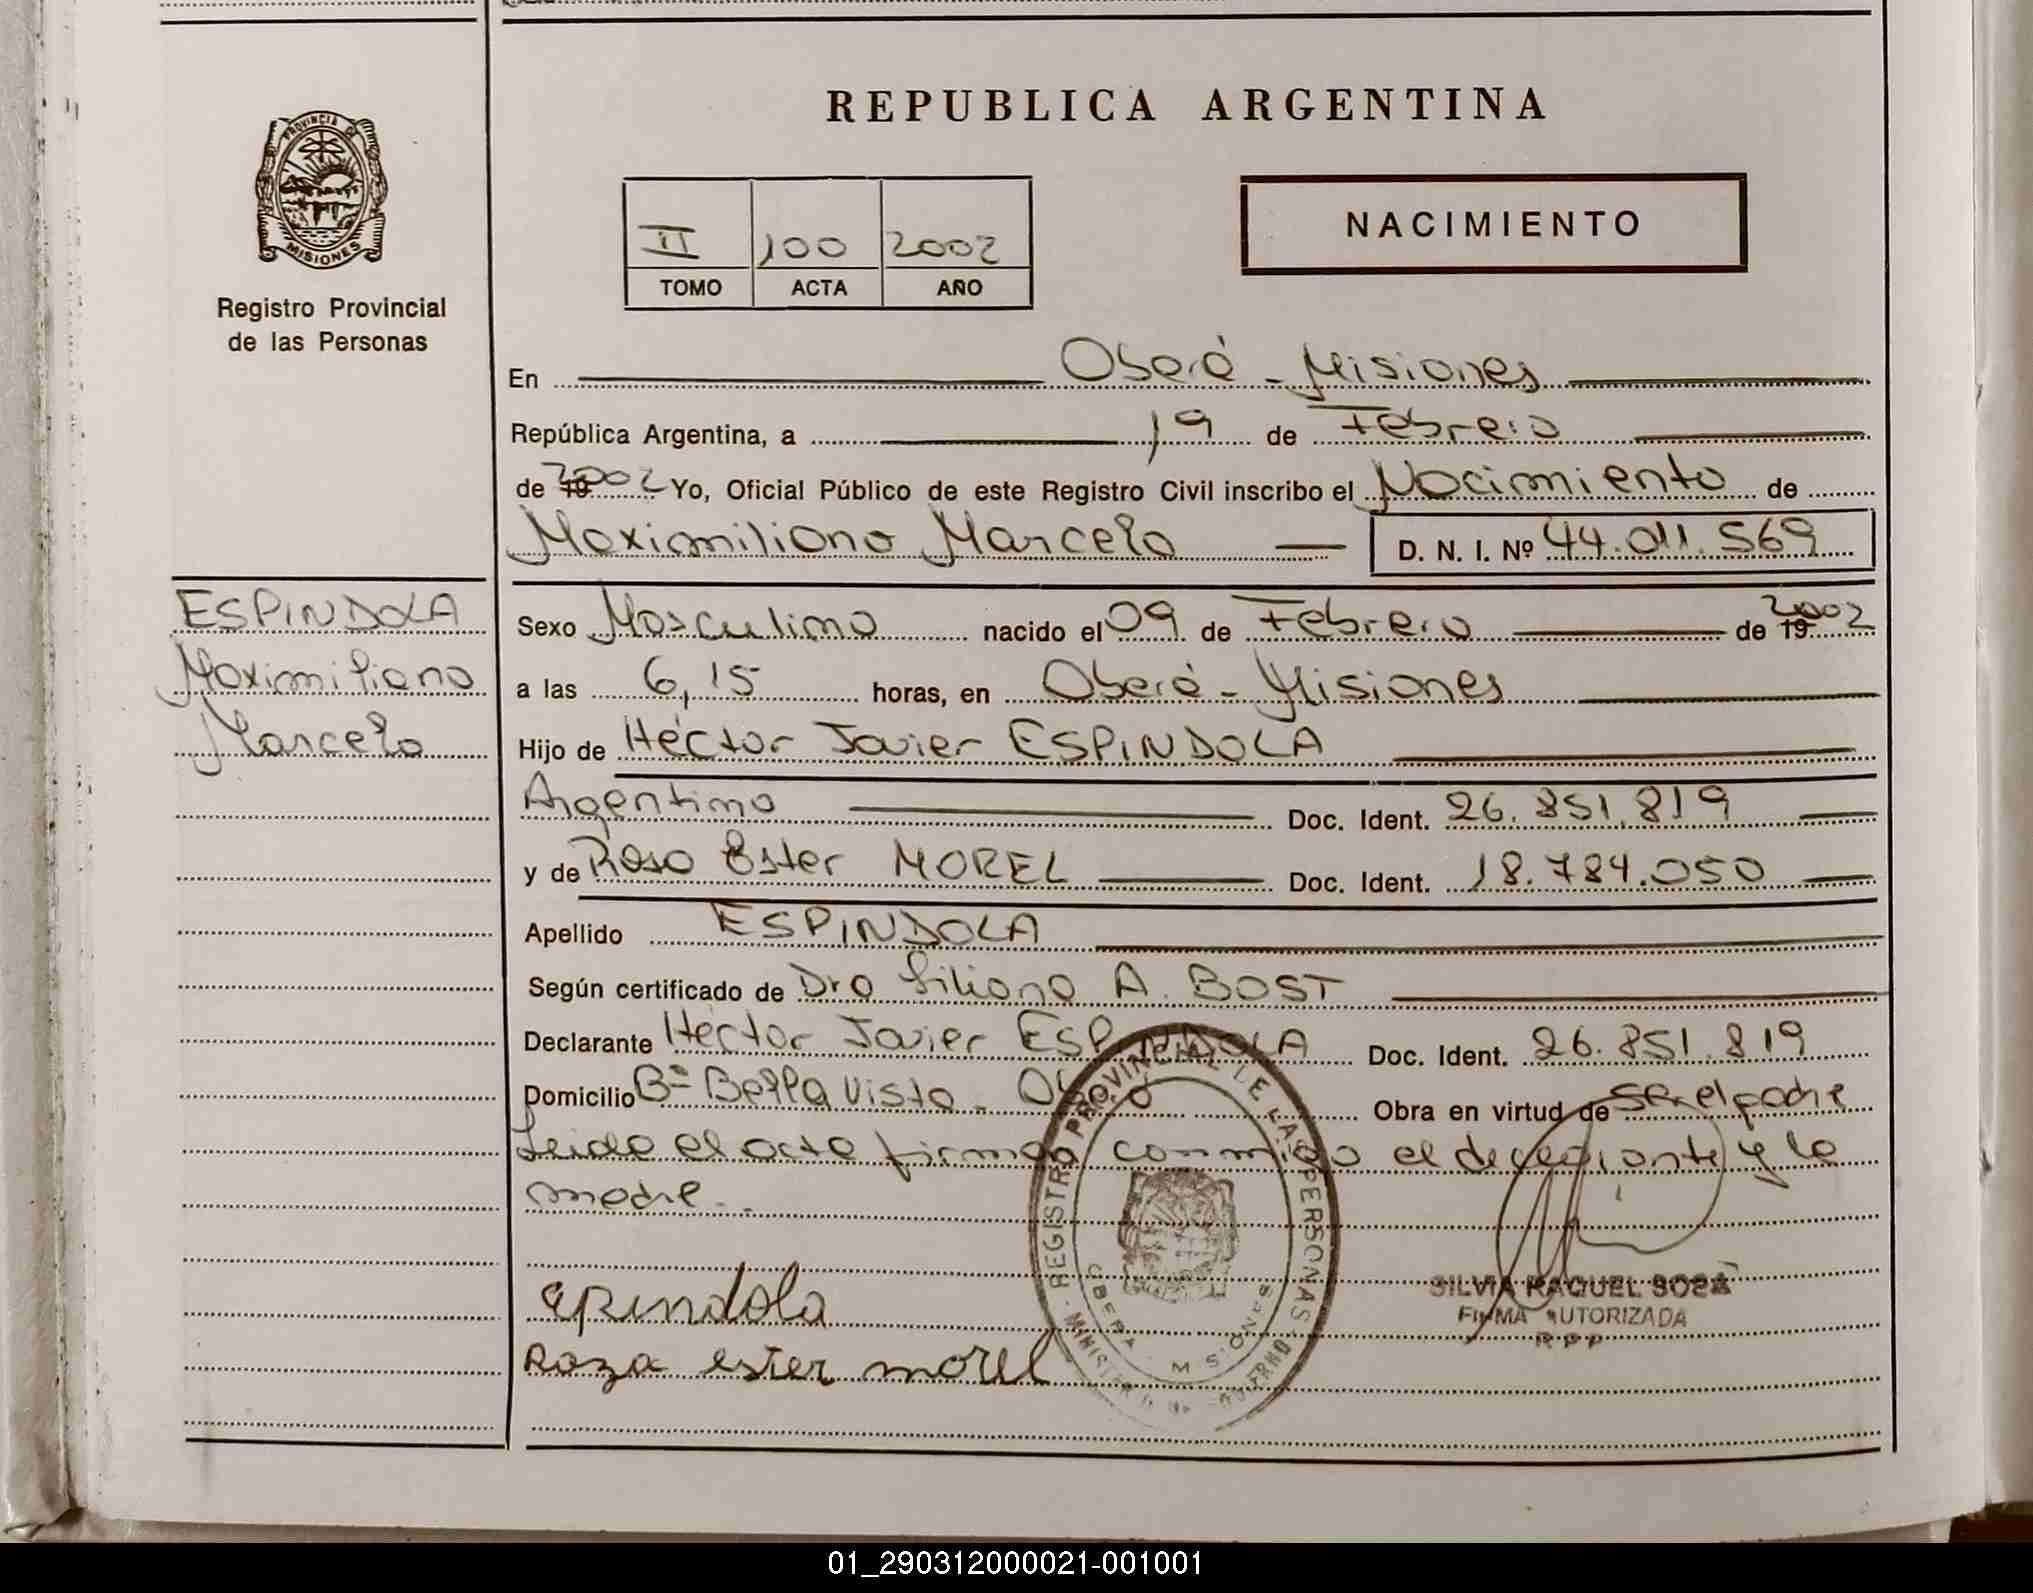 REPUBLICA ARGENTINA
PROVINCIA DE
MISIONES
Registro Provincial
de las Personas
II 100 2002
TOMO ACTA AÑO
NACIMIENTO
En Oberá - Misiones
República Argentina, a 19 de Febrero
de 2002 Yo, Oficial Público de este Registro Civil inscribo el Nacimiento de
Maximiliano Marcelo D. N. I. Nº 44.011.569
ESPINDOLA
Maximiliano
Marcelo
Sexo Masculino nacido el 09 de Febrero de 2002
a las 6,15 horas, en Oberá - Misiones
Hijo de Héctor Javier ESPINDOLA
Argentino Doc. Ident. 26.851.819
y de Rosa Ester MOREL Doc. Ident. 18.784.050
Apellido ESPINDOLA
Según certificado de Dra Liliana A. BOST
Declarante Héctor Javier ESPINDOLA Doc. Ident. 26.851.819
Domicilio Bº Bella Vista - Oberá Obra en virtud de ser el padre
Leida el acta firman conmigo el declarante y la
madre.
Epindola
Roza ester morel
REGISTRO PROVINCIAL DE LAS PERSONAS
OBERA MISIONES
SILVIA RAQUEL SOSA
FIRMA AUTORIZADA
R P P
01_290312000021-001001